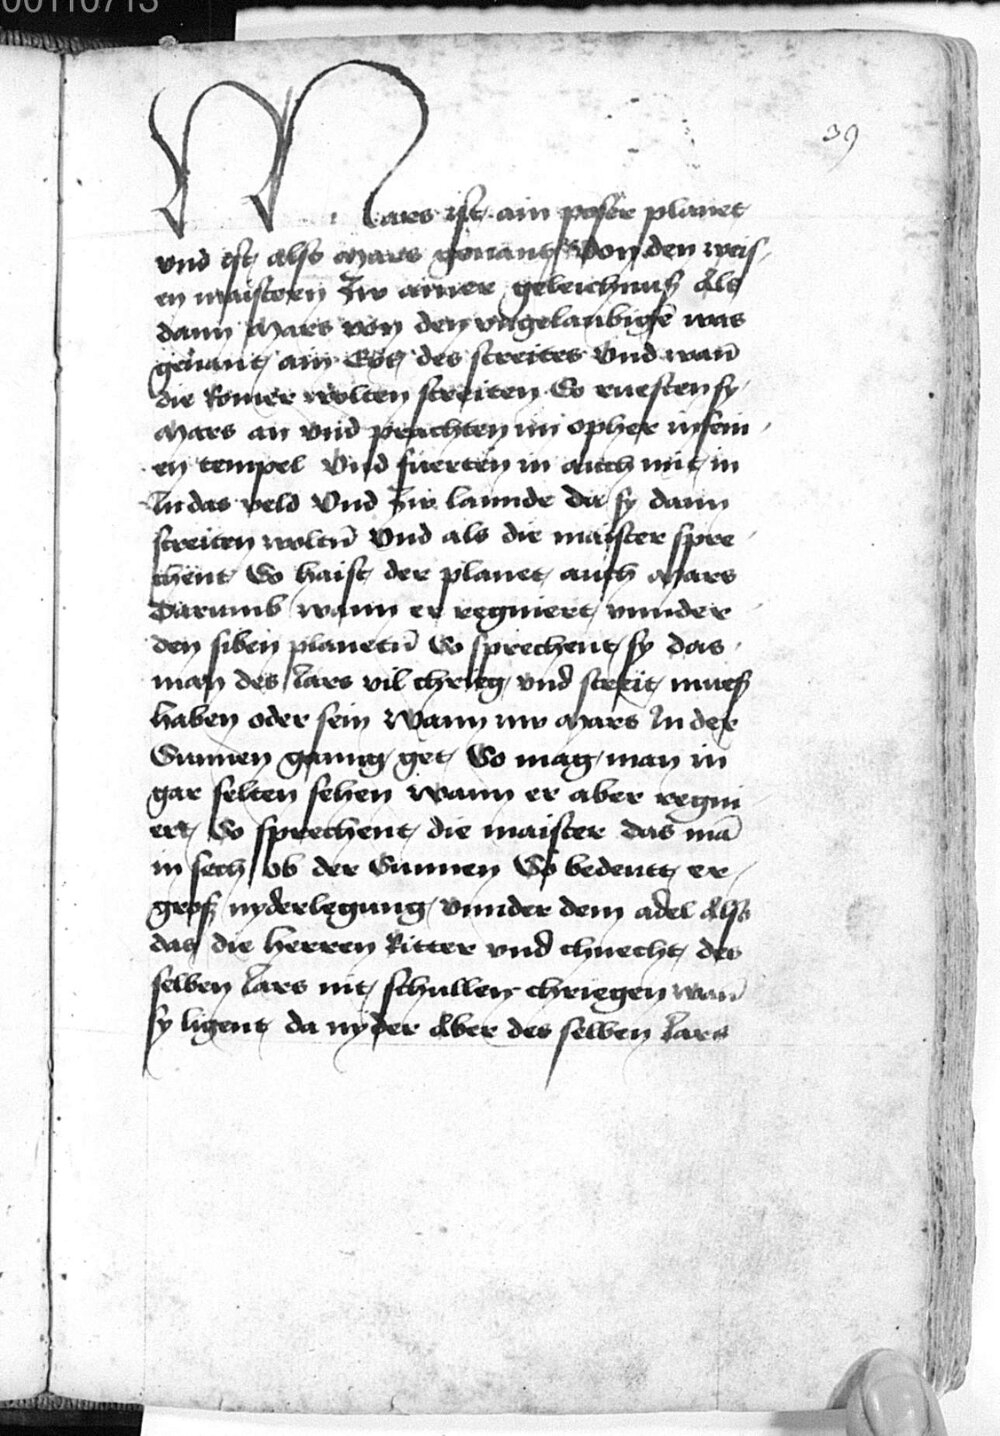 00110713
39
Mars ist ain poser planet
vnd ist also Mars genant Von den weis
en maistern Zw ainer geleichnuss Als
dann Mars von den vngelaubigē was
genant ain Got des streites Vnd wan̄
die Romer wolten streiten So ruesten sy
Mars an vnd prachten im opher in sein
en tempel Vnd fuerten in auch mit in
In das veld Vnd Zw lannde da sy dann
streiten woltn̄ Vnd als die maister spre
chent So haist der planet auch Mars
Darumb wann er regniert vnnder
den siben planetn̄ So sprechent sy das
man des Iars vil chrieg vnd streit muess
haben oder sein Wann nw Mars In der
Sunnen ganng get So mag man in
gar selten sehen wann er aber regni
ert So sprechent die maister das mā
in sech ob der Sunnen So bedeutt er
gross nyderlegung vnnder dem adel Alss
das die herren Ritter vnd chnecht des
selben Iars nit schullen chriegen wan̄
sy ligent da nyder Aber des selben Iars